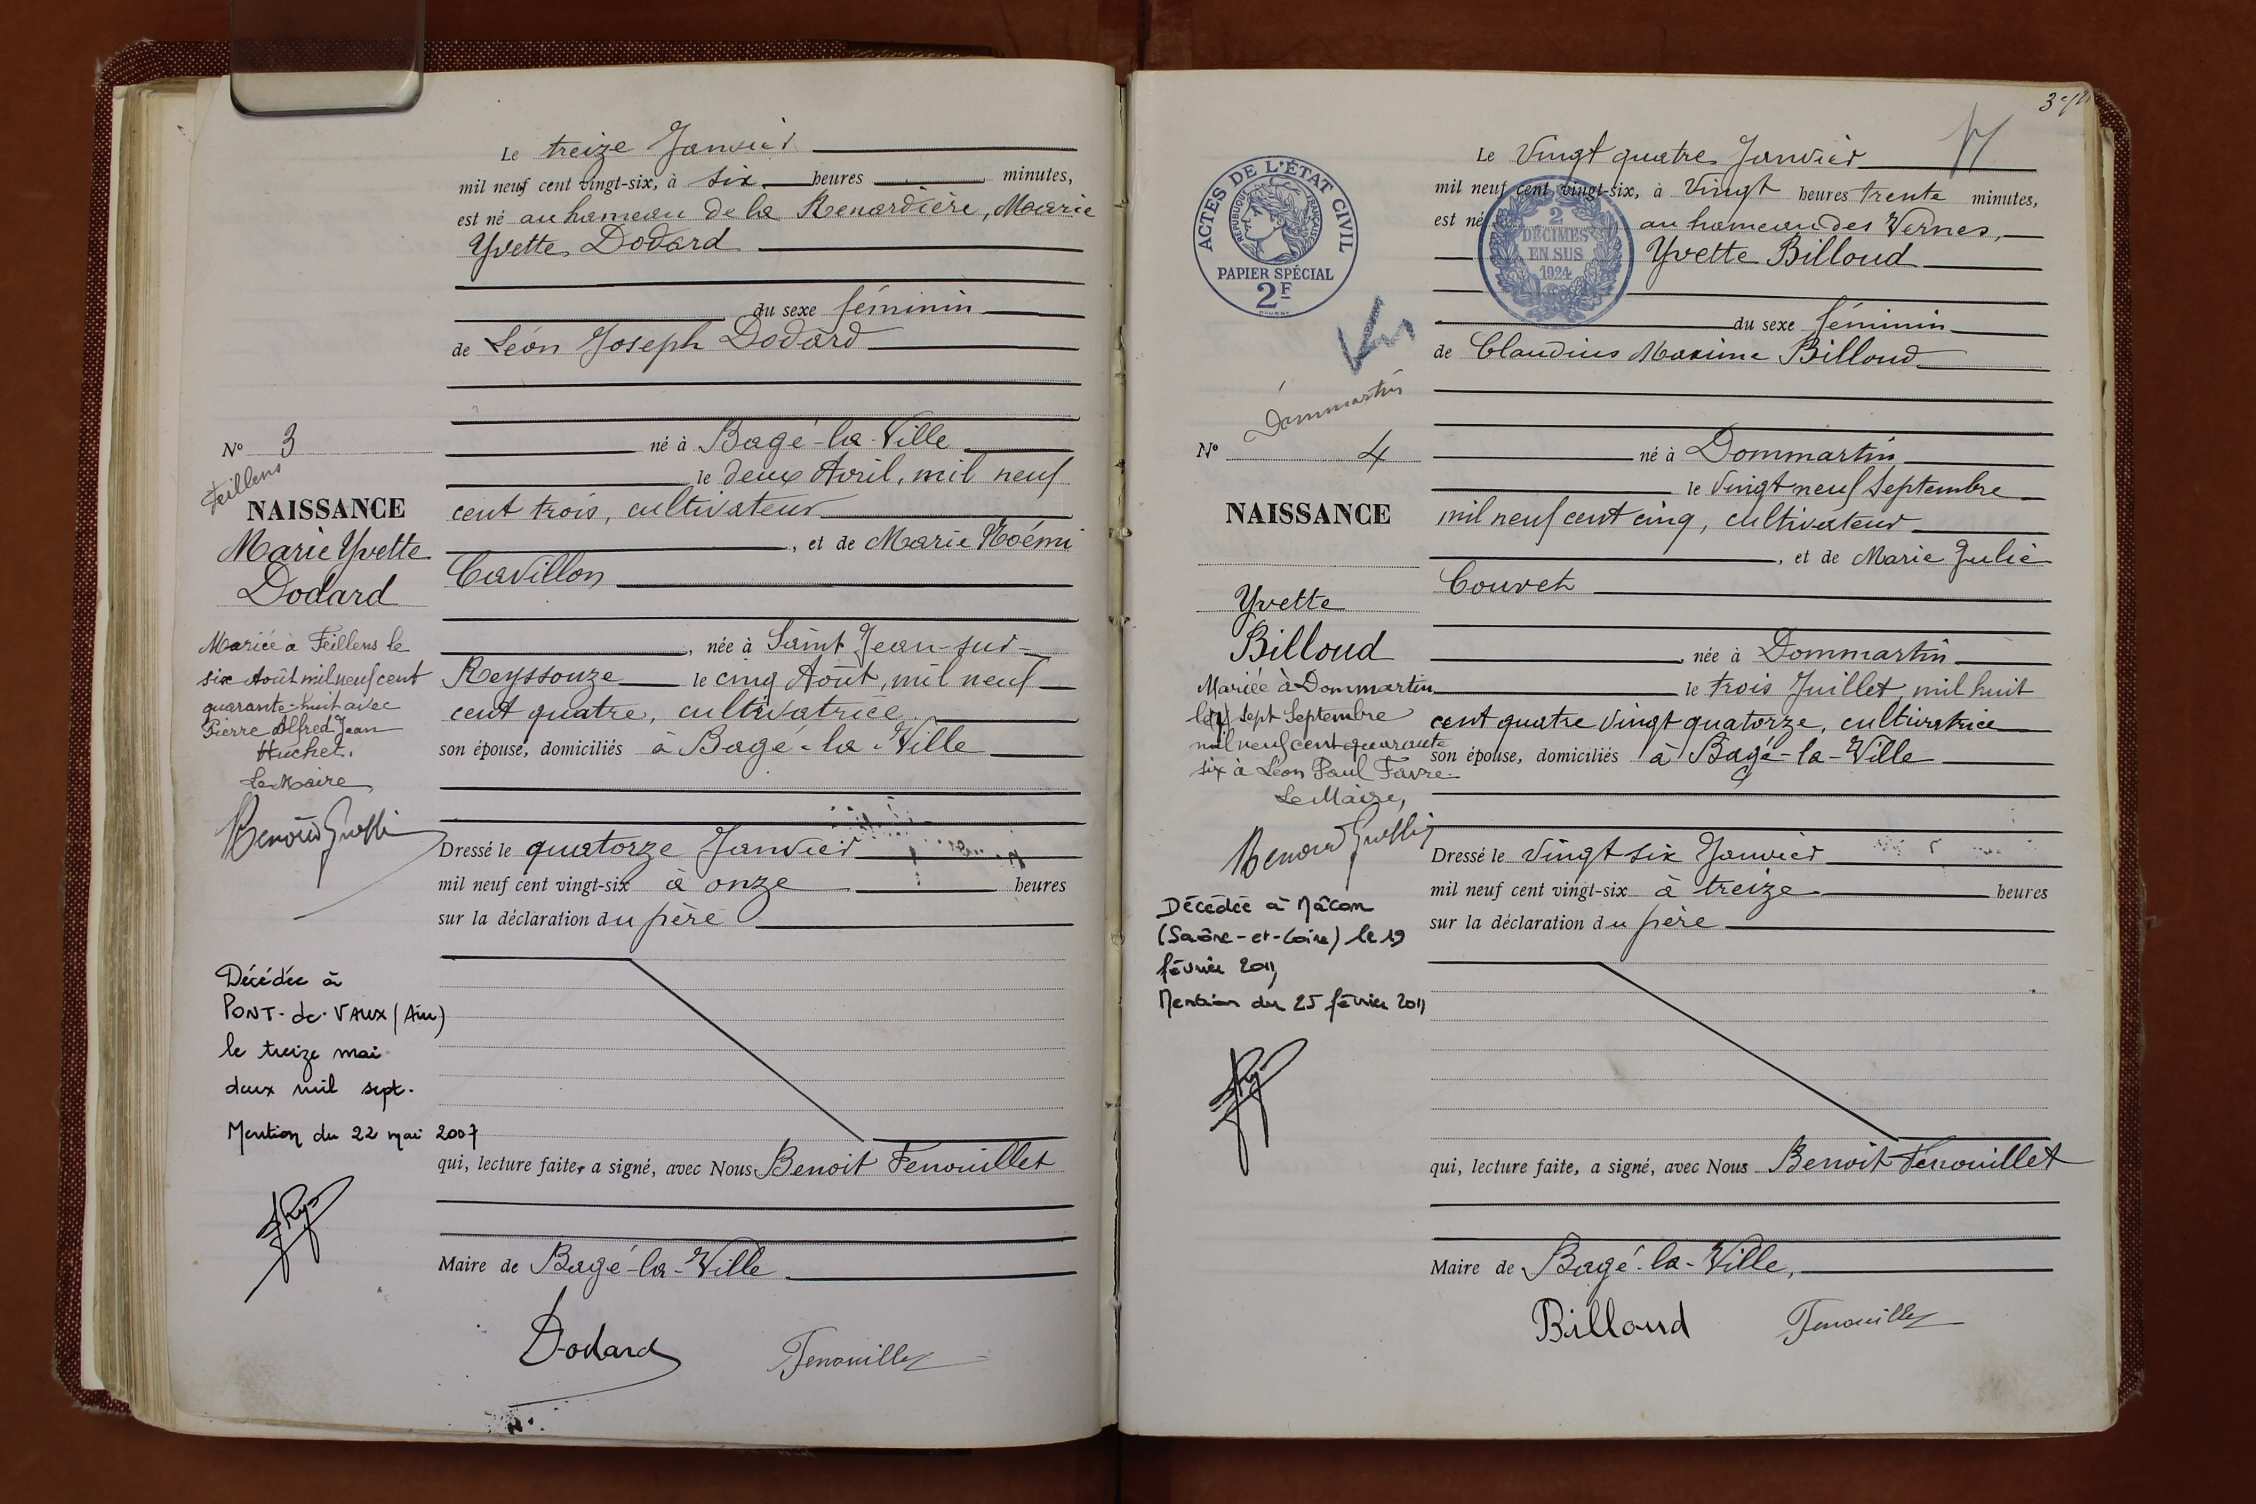 Le treize Janvier
mil neuf cent vingt-six, à six heures minutes,
est né au hameau de la Renardière, Marie
Yvette Dodard
du sexe féminin
de Léon Joseph Dodard
né à Bagé-la-Ville
le deux Avril, mil neuf
cent trois, cultivateur
, et de Marie Noémi
Cavillon
, née à Saint Jean-sur-
Reyssouze le cinq Août, mil neuf
cent quatre, cultivatrice
son épouse, domiciliés à Bagé-la-Ville
Dressé le quatorze Janvier
mil neuf cent vingt-six à onze heures
sur la déclaration du père
qui, lecture faite, a signé, avec Nous Benoit Fenouillet
Maire de Bagé-la-Ville
Dodard Fenouillet
N° 3
Feillens
NAISSANCE
Marie Yvette
Dodard
Mariée à Feillens le
six Août mil neuf cent
quarante-huit avec
Pierre Alfred Jean
Huchet.
Le Maire
Décédée à
PONT-de-VAUX (Ain)
le treize mai
deux mil sept.
Mention du 22 mai 2007
Le Vingt quatre Janvier
mil neuf cent vingt-six, à Vingt heures trente minutes,
est né au hameau des Vernes,
Yvette Billoud
du sexe féminin
de Claudius Maxime Billoud
né à Dommartin
le Vingt neuf Septembre
mil neuf cent cinq, cultivateur
, et de Marie Julie
Couvet
, née à Dommartin
le trois Juillet mil huit
cent quatre vingt quatorze, cultivatrice
son épouse, domiciliés à Bagé-la-Ville
Dressé le Vingt six Janvier
mil neuf cent vingt-six à treize heures
sur la déclaration du père
qui, lecture faite, a signé, avec Nous Benoit Fenouillet
Maire de Bagé-la-Ville,
Billoud Fenouillet
ACTES DE L'ÉTAT CIVIL
RÉPUBLIQUE FRANÇAISE
PAPIER SPÉCIAL
2F
2
DÉCIMES
EN SUS
1924
Dommartin
N° 4
NAISSANCE
Yvette
Billoud
Mariée à Dommartin
le sept Septembre
mil neuf cent quarante
six à Léon Paul Favre
Le Maire,
Décédée à Mâcon
(Saône-et-Loire) le 19
février 2011
Mention du 25 février 2011